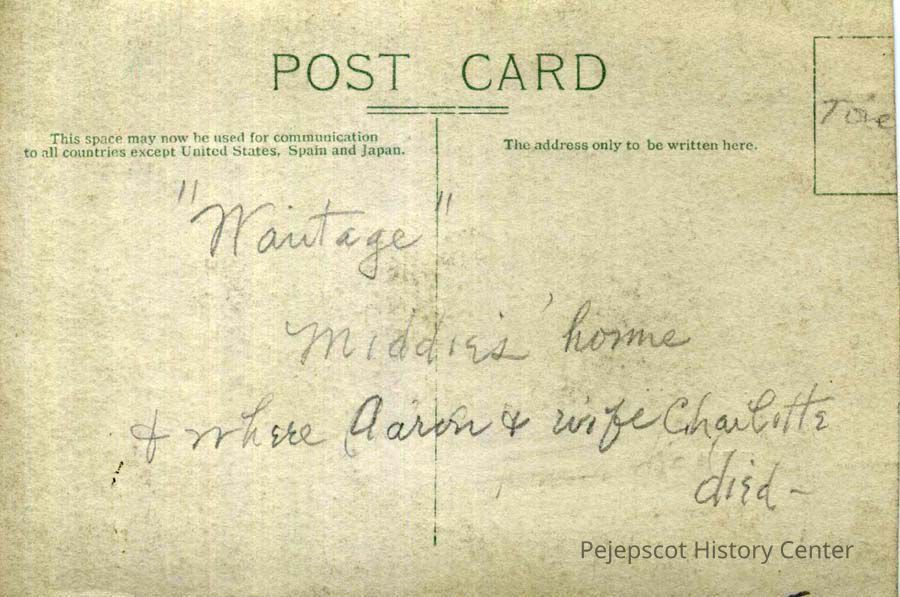 POST CARD
This space may now be used for communication
to all countries except United States, Spain and Japan.
The address only to be written here.
"Wantage"
Middies' home
& where Aaron & wife Charlotte
died-
Pejepscot History Center